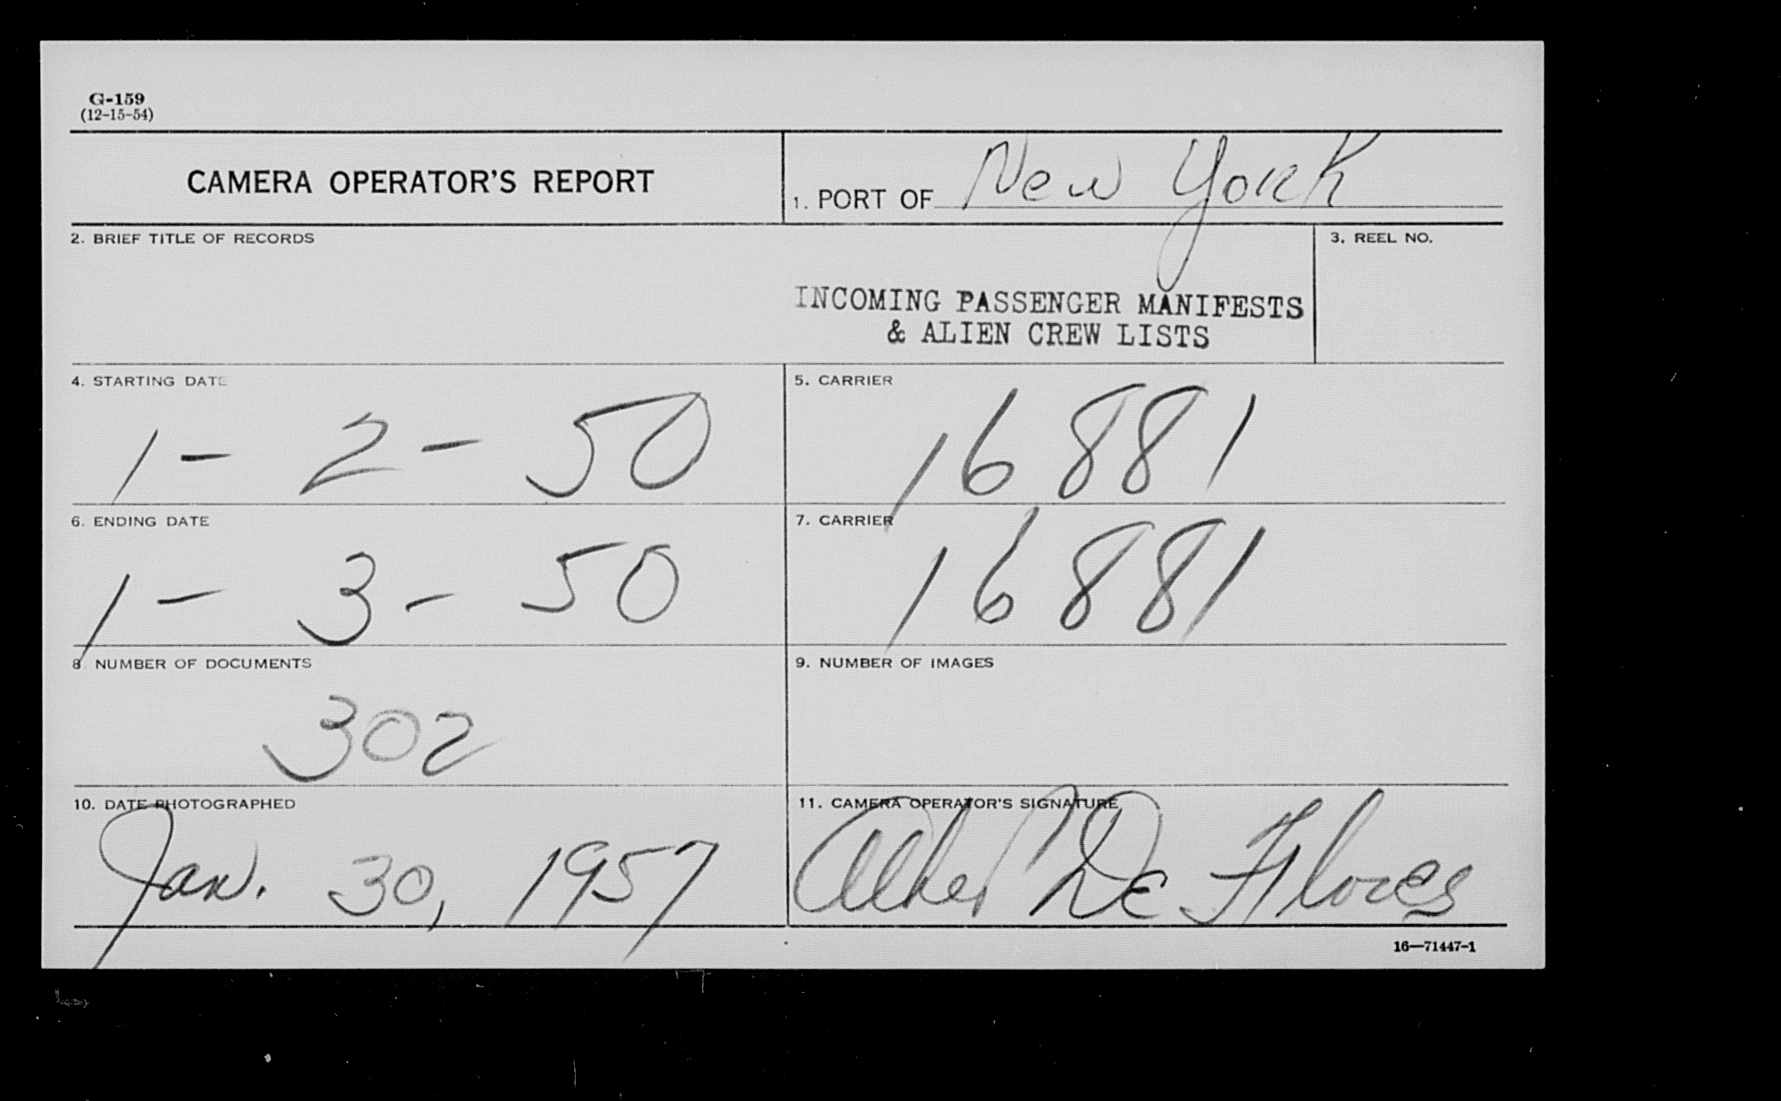 G-159
(12-15-54)
CAMERA OPERATOR'S REPORT
1. PORT OF New York
2. BRIEF TITLE OF RECORDS
3. REEL NO.
INCOMING PASSENGER MANIFESTS
& ALIEN CREW LISTS
4. STARTING DATE
5. CARRIER
1 - 2 - 50
16881
6. ENDING DATE
7. CARRIER
1 - 3 - 50
16881
8. NUMBER OF DOCUMENTS
9. NUMBER OF IMAGES
302
10. DATE PHOTOGRAPHED
11. CAMERA OPERATOR'S SIGNATURE
Jan. 30, 1957
De Flores
16—71447-1